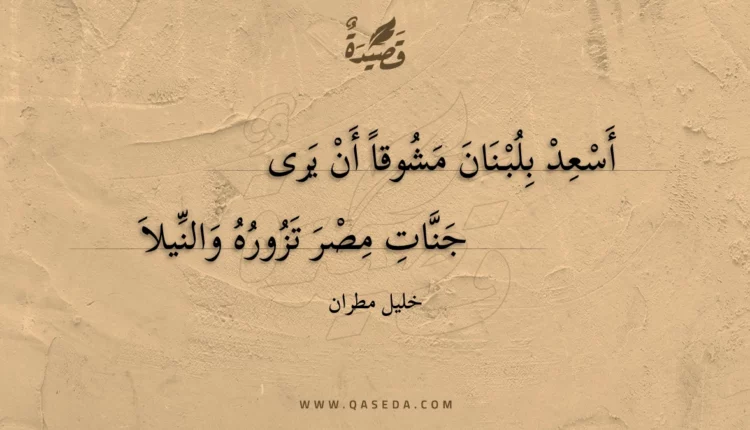 قَصِيْدَةٌ
أَسْعِدْ بِلُبْنَانَ مَشُوقاً أَنْ يَرى
جَنَّاتِ مِصْرَ تَزُورُهُ وَالنِّيلاَ
خليل مطران
WWW.QASEDA.COM